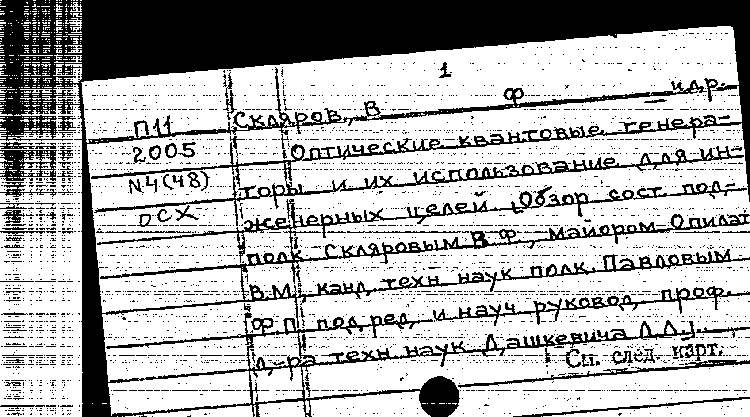 1
П11 Скляров, В Ф и др.
2005 Оптические квантовые генера-
N4(48) торы и их использование для ин-
ОСХ женерных целей. [Обзор сост. под-
полк. Скляровым В.Ф., майором Опилат
В.М., канд. техн наук полк. Павловым
Ф.П. под ред. и науч руковод. проф.
д-ра техн наук Дашкевича Л.Л.].
См. след. карт.